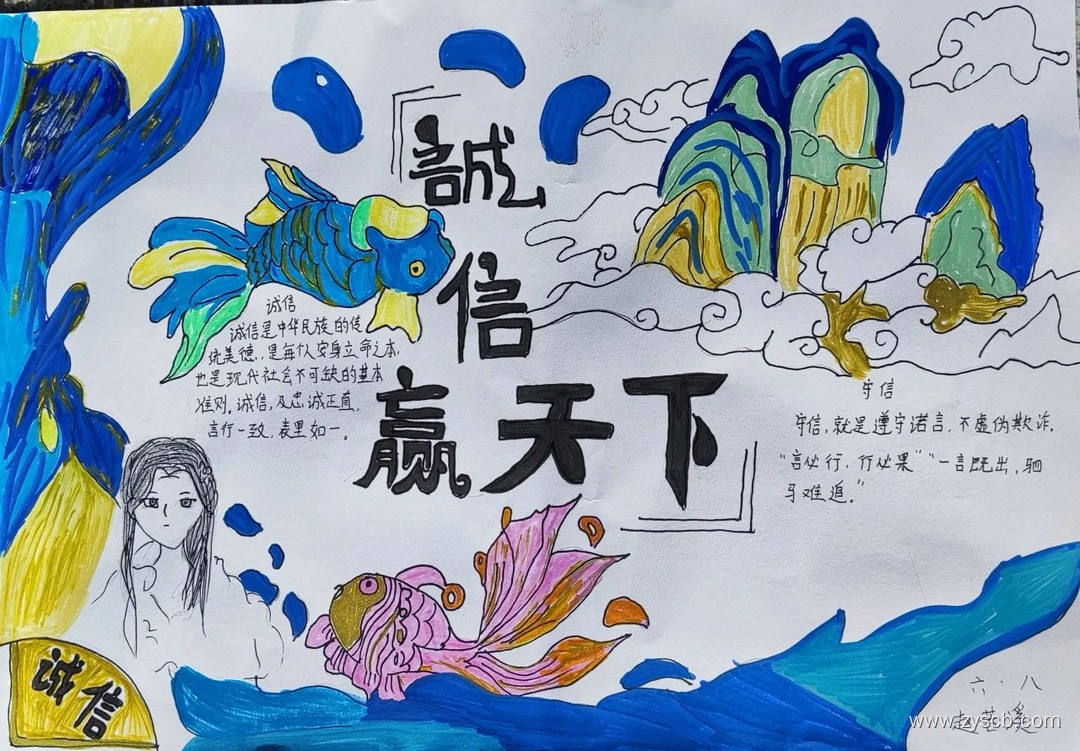 誠
信
赢天下
诚信
诚信是中华民族的传
统美德,是每个人安身立命之本,
也是现代社会不可缺的基本
准则。诚信,及忠诚正直,
言行一致,表里如一。
守信
守信,就是遵守诺言,不虚伪欺诈。
“言必行,行必果”“一言既出,驷
马难追。”
诚信
六·八
www.zyscb.com